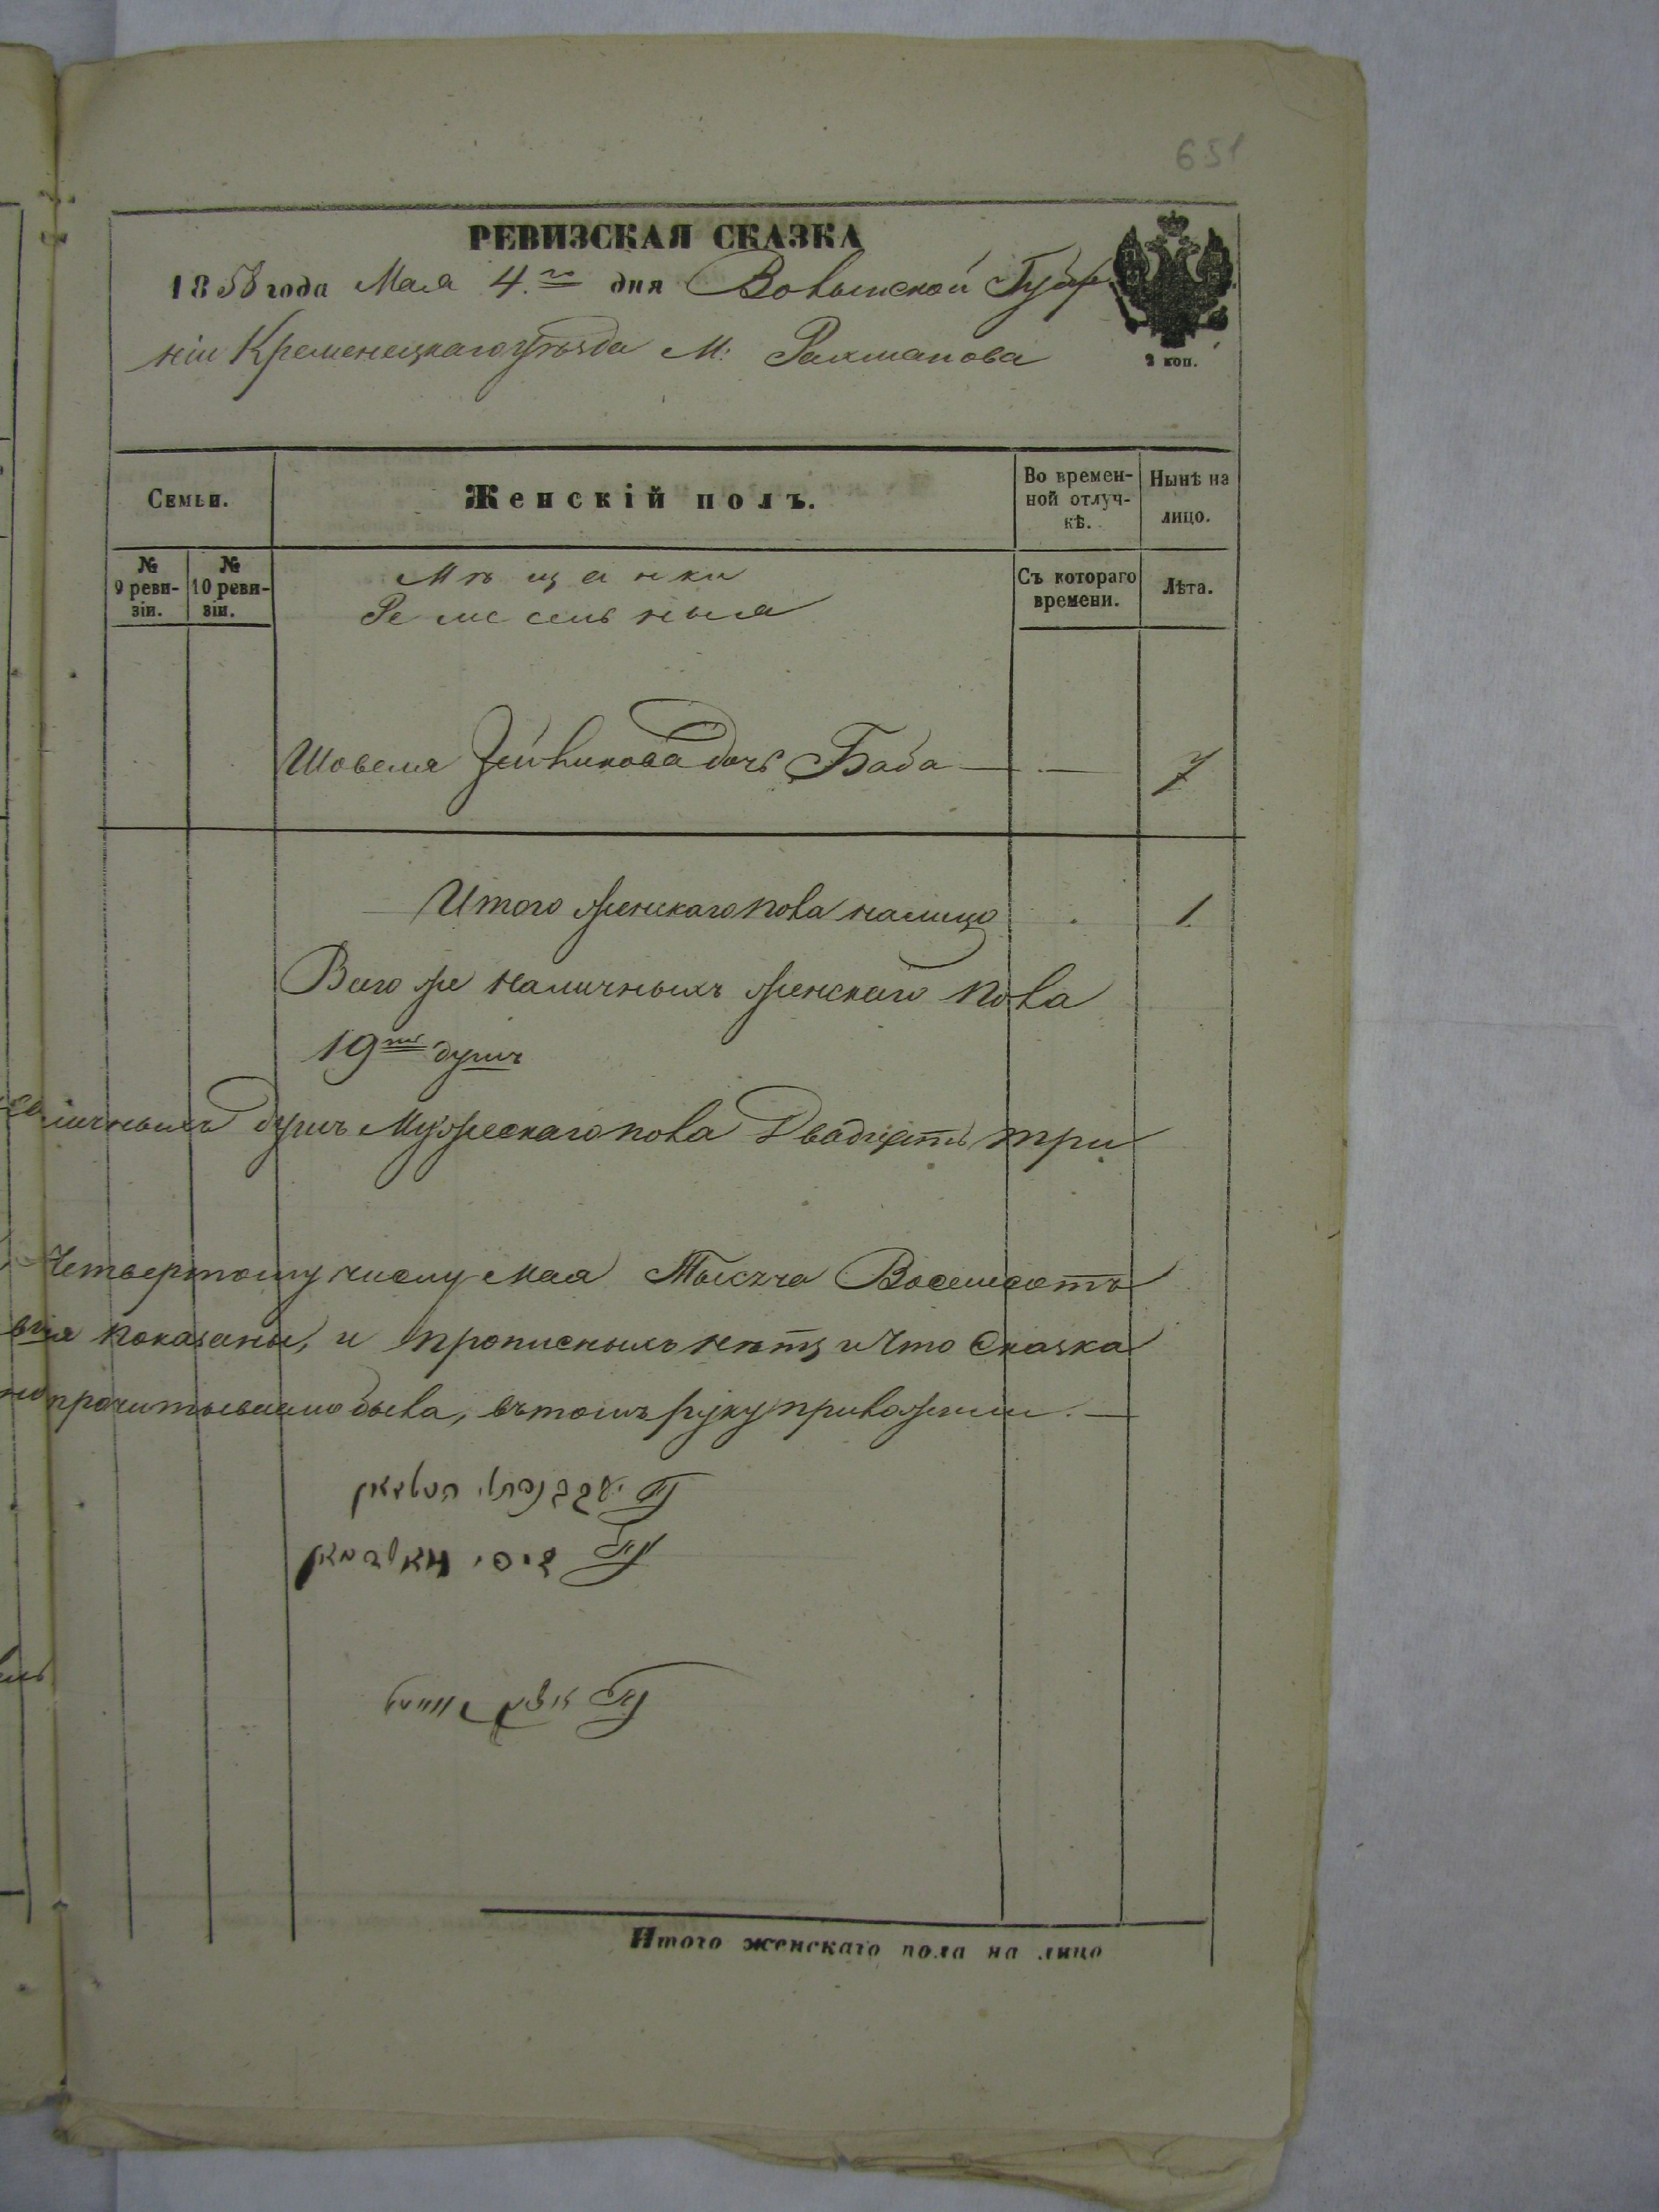 651
РЕВИЗСКАЯ СКАЗКА
1858 года Мая 4.го дня Волынской Губер
ніи Кременецкаго уѣзда М: Рахманова
2 коп.
Семьи.
Женскій полъ.
Во времен-
ной отлуч-
кѣ.
Нынѣ на
лицо.
№
9 реви-
зіи.
№
10 реви-
зіи.
Мѣщанки
Ремесленыя
Съ котораго
времени.
Лѣта.
дочь Баба — — 7
Итого женскаго пола налицо . 1.
Всего же наличныхъ женскаго пола
19ть душъ
личныхъ душъ Мужескаго пола Двадцать три
Четвертому числу Мая Тысяча Восемсотъ
показаны, и прописныхъ нѣтъ и что Сказка
прочитываема была, въ томъ руку приложили. —
Итого женскаго пола на лицо